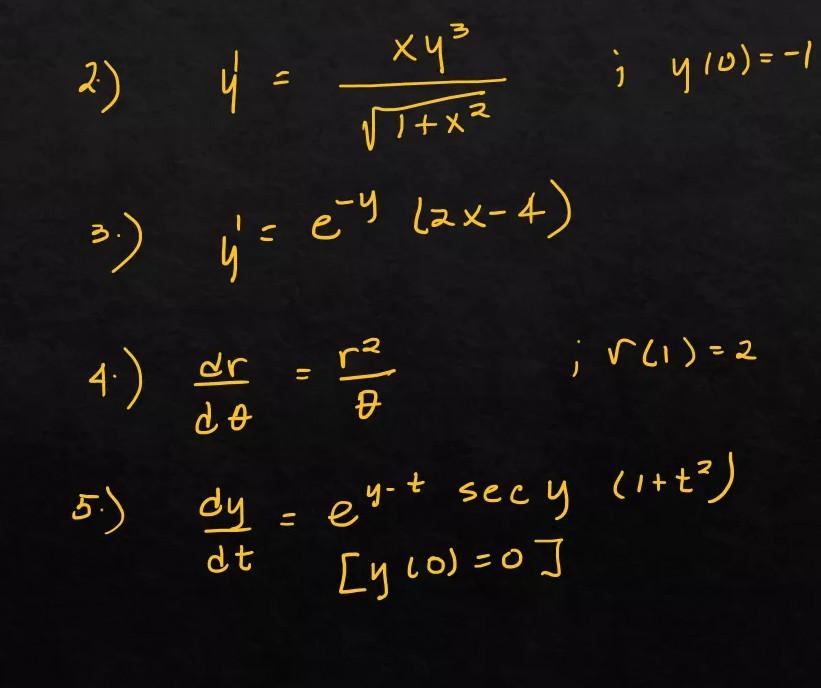 2.) y' = xy³ / √(1+x²) ; y(0) = -1
3.) y' = e^(-y) (2x-4)
4.) dr/dθ = r²/θ ; r(1) = 2
5.) dy/dt = e^(y-t) sec y (1+t²)
[y(0) = 0]